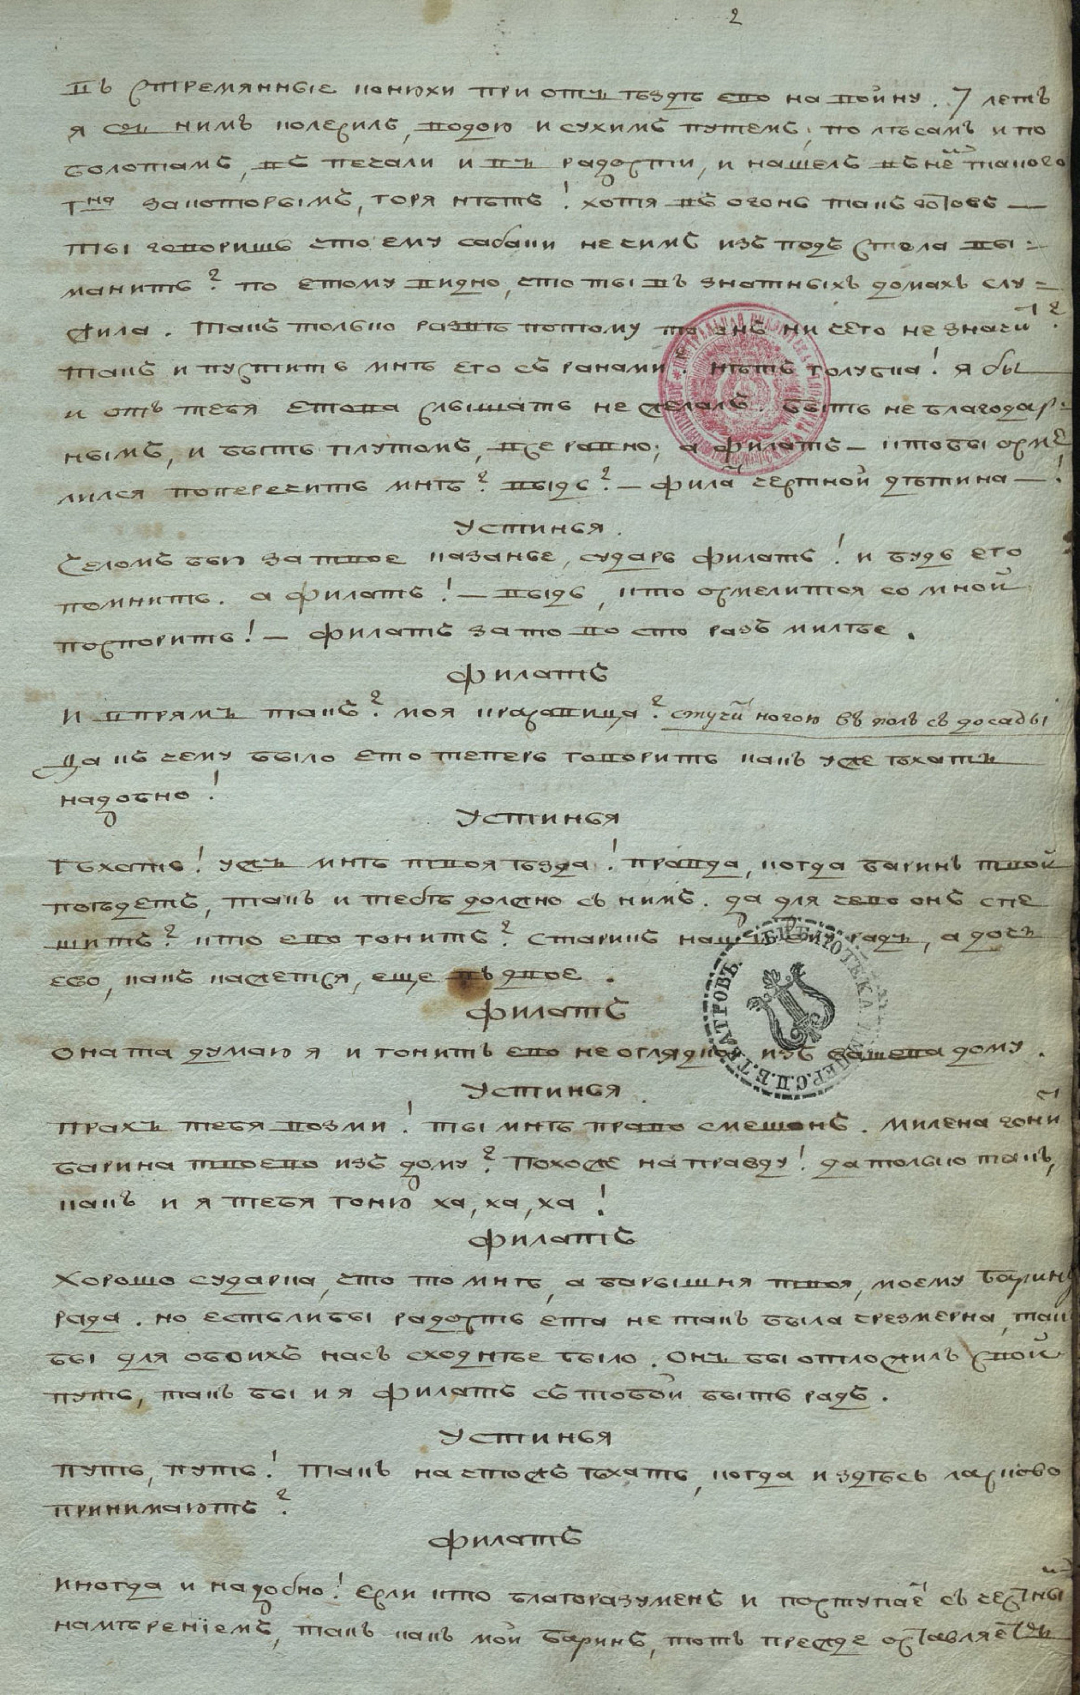 2
въ стремянные конюхи при отъ ѣздѣ ево на войну. 7 летъ
я съ нимъ колесилъ, водою и сухимъ путемъ, по лѣсамъ и по
болотамъ, въ печали и въ радости, и нашелъ въ нем такого
Гна за которымъ, горя нѣтъ! хотя въ огонь такъ готовъ —
ты говоришь что ему сабаки не симъ изъ подъ стола вы-
манить? по етому видно, что ты въ знатныхъ домахъ слу-
жила. Такъ только развѣ потому то онъ ни чего не значит?
такъ и пустить мнѣ его съ ранами? нѣтъ голубка! я бы
и отъ тебя етова слышать не желалъ. быть не благодар-
нымъ, и быть плутомъ, все равно; а филатъ — ктобы осме
лился поперечить мнѣ? выдь? — фила честной дѣтина — !
Устинья.
Челомъ бью за твое казанье, сударь филатъ! и будь его
помнить. а филатъ! — выдь, кто осмелится со мной
поспорить! — филатъ за то во сто разъ милѣе.
филатъ
И впрямъ такъ? моя красавица? стучит ногою въ полъ съ досады
Да къ чему было ето теперь говорить какъ уже ѣхать
надобно!
Устинья
Ѣхать! ужъ мнѣ твоя ѣзда! правда, когда баринъ твой
поѣдетъ, такъ и тебѣ должно съ нимъ. да для чево онъ спе
шитъ? кто ево гонитъ? старикъ нашъ ему радъ, а дочь
ево, какъ кажется, еще въ двое.
филатъ
Она та думаю я и гонитъ ево неоглядкой изъ вашева дому.
Устинья.
Прахъ тебя возми! ты мнѣ право смешонъ. Милена гонит
барина твоево изъ дому? Похоже на правду! да только такъ,
какъ и я тебя гоню ха, ха, ха!
филатъ
Хорошо сударка, что то мнѣ, а барышня твоя, моему барину
рада. но естьлибы радость ета не такъ была чрезмерна, так
бы для обоихъ насъ сходнѣе было. Онъ бы отложилъ свой
путь, такъ бы и я филатъ съ тобой быть радъ.
Устинья
Путь, путь! Такъ на чтожъ ѣхать, когда и здѣсь ласково
принимаютъ?
филатъ
Иногда и надобно! Если кто благоразуменъ и поступает съ честным
намѣреніемъ, такъ какъ мой баринъ, тотъ прежде оставляетъ